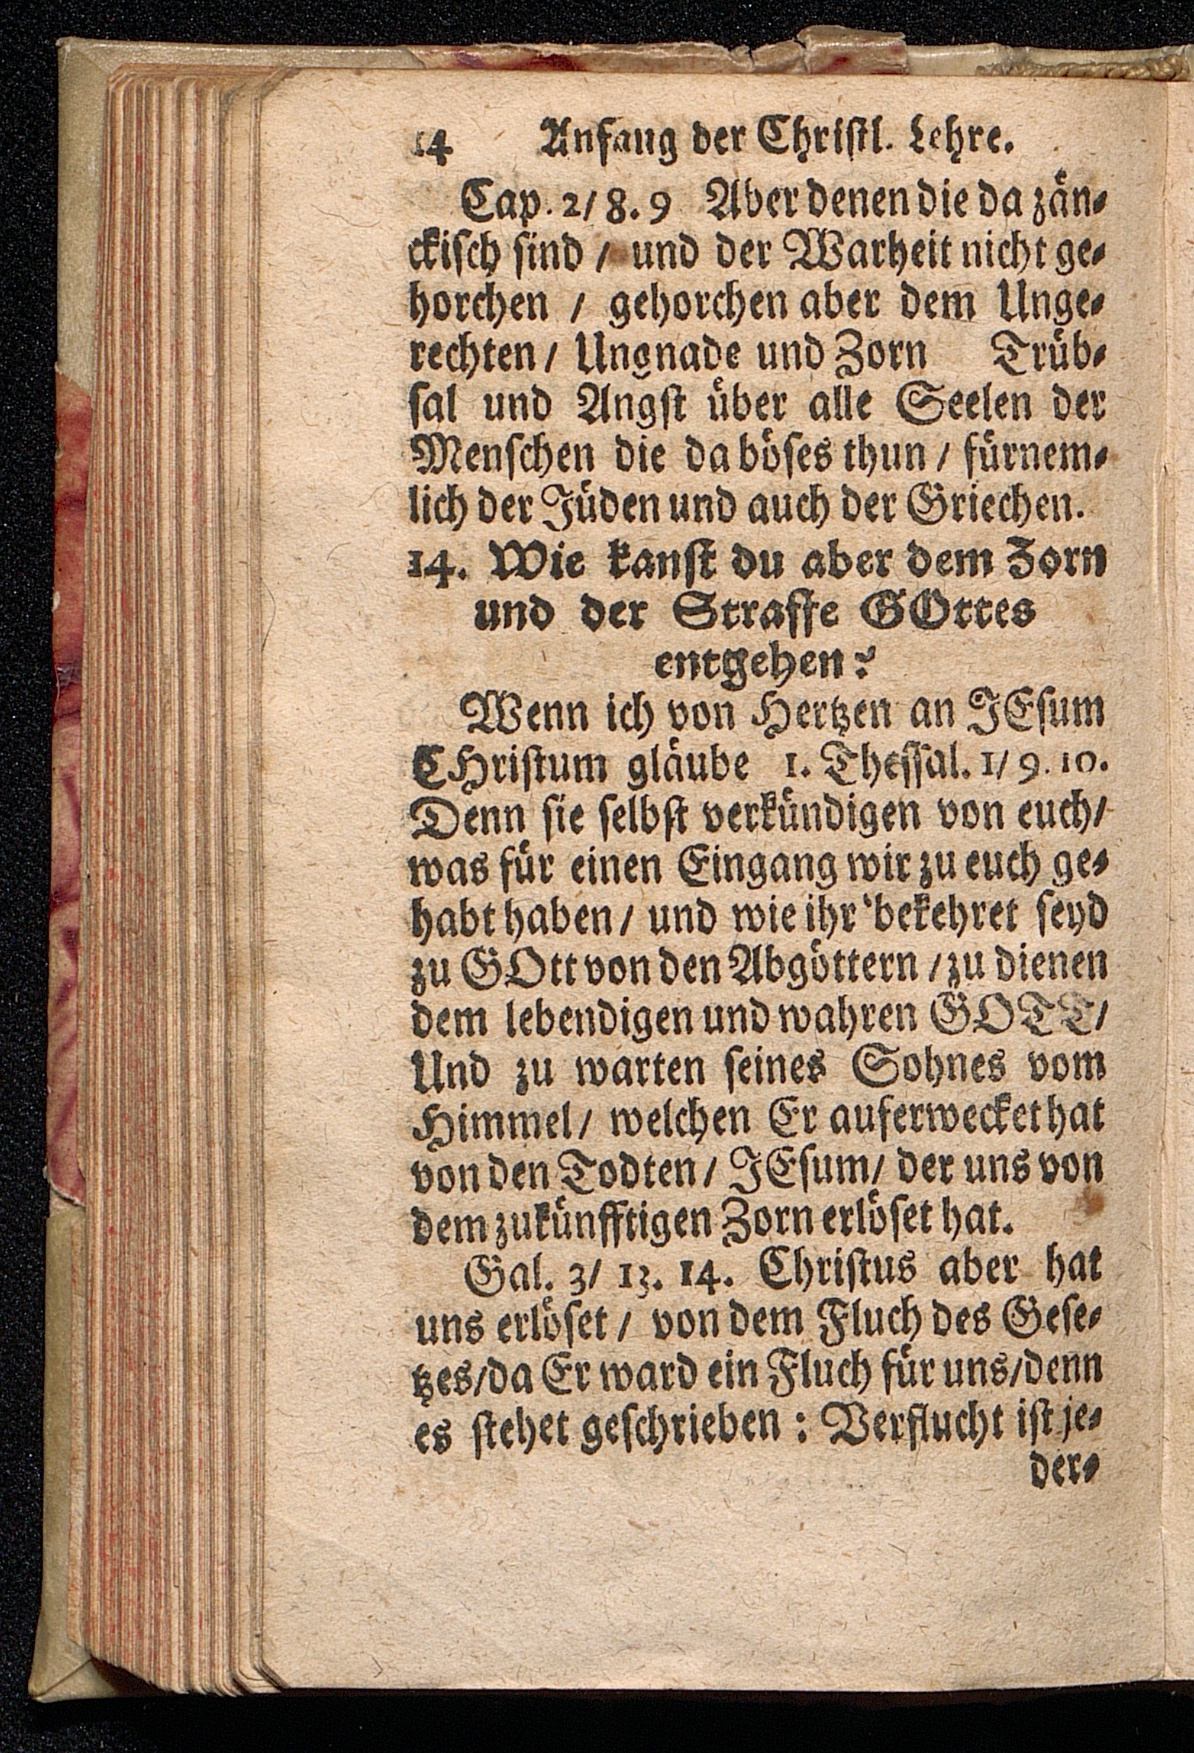 14 Anfang der Christl. Lehre.
Cap. 2/ 8. 9 Aber denen die da zän-
ckisch sind / und der Warheit nicht ge-
horchen / gehorchen aber dem Unge-
rechten / Ungnade und Zorn Trüb-
sal und Angst über alle Seelen der
Menschen die da böses thun / fürnem-
lich der Jüden und auch der Griechen.
14. Wie kanst du aber dem Zorn
und der Straffe GOttes
entgehen?
Wenn ich von Hertzen an JEsum
CHristum gläube 1. Thessal. 1/ 9. 10.
Denn sie selbst verkündigen von euch/
was für einen Eingang wir zu euch ge-
habt haben / und wie ihr bekehret seyd
zu GOtt von den Abgöttern / zu dienen
dem lebendigen und wahren GOTT/
Und zu warten seines Sohnes vom
Himmel / welchen Er auferwecket hat
von den Todten / JEsum / der uns von
dem zukünfftigen Zorn erlöset hat.
Gal. 3/ 13. 14. Christus aber hat
uns erlöset / von dem Fluch des Gese-
tzes/da Er ward ein Fluch für uns/denn
es stehet geschrieben : Verflucht ist je-
der-